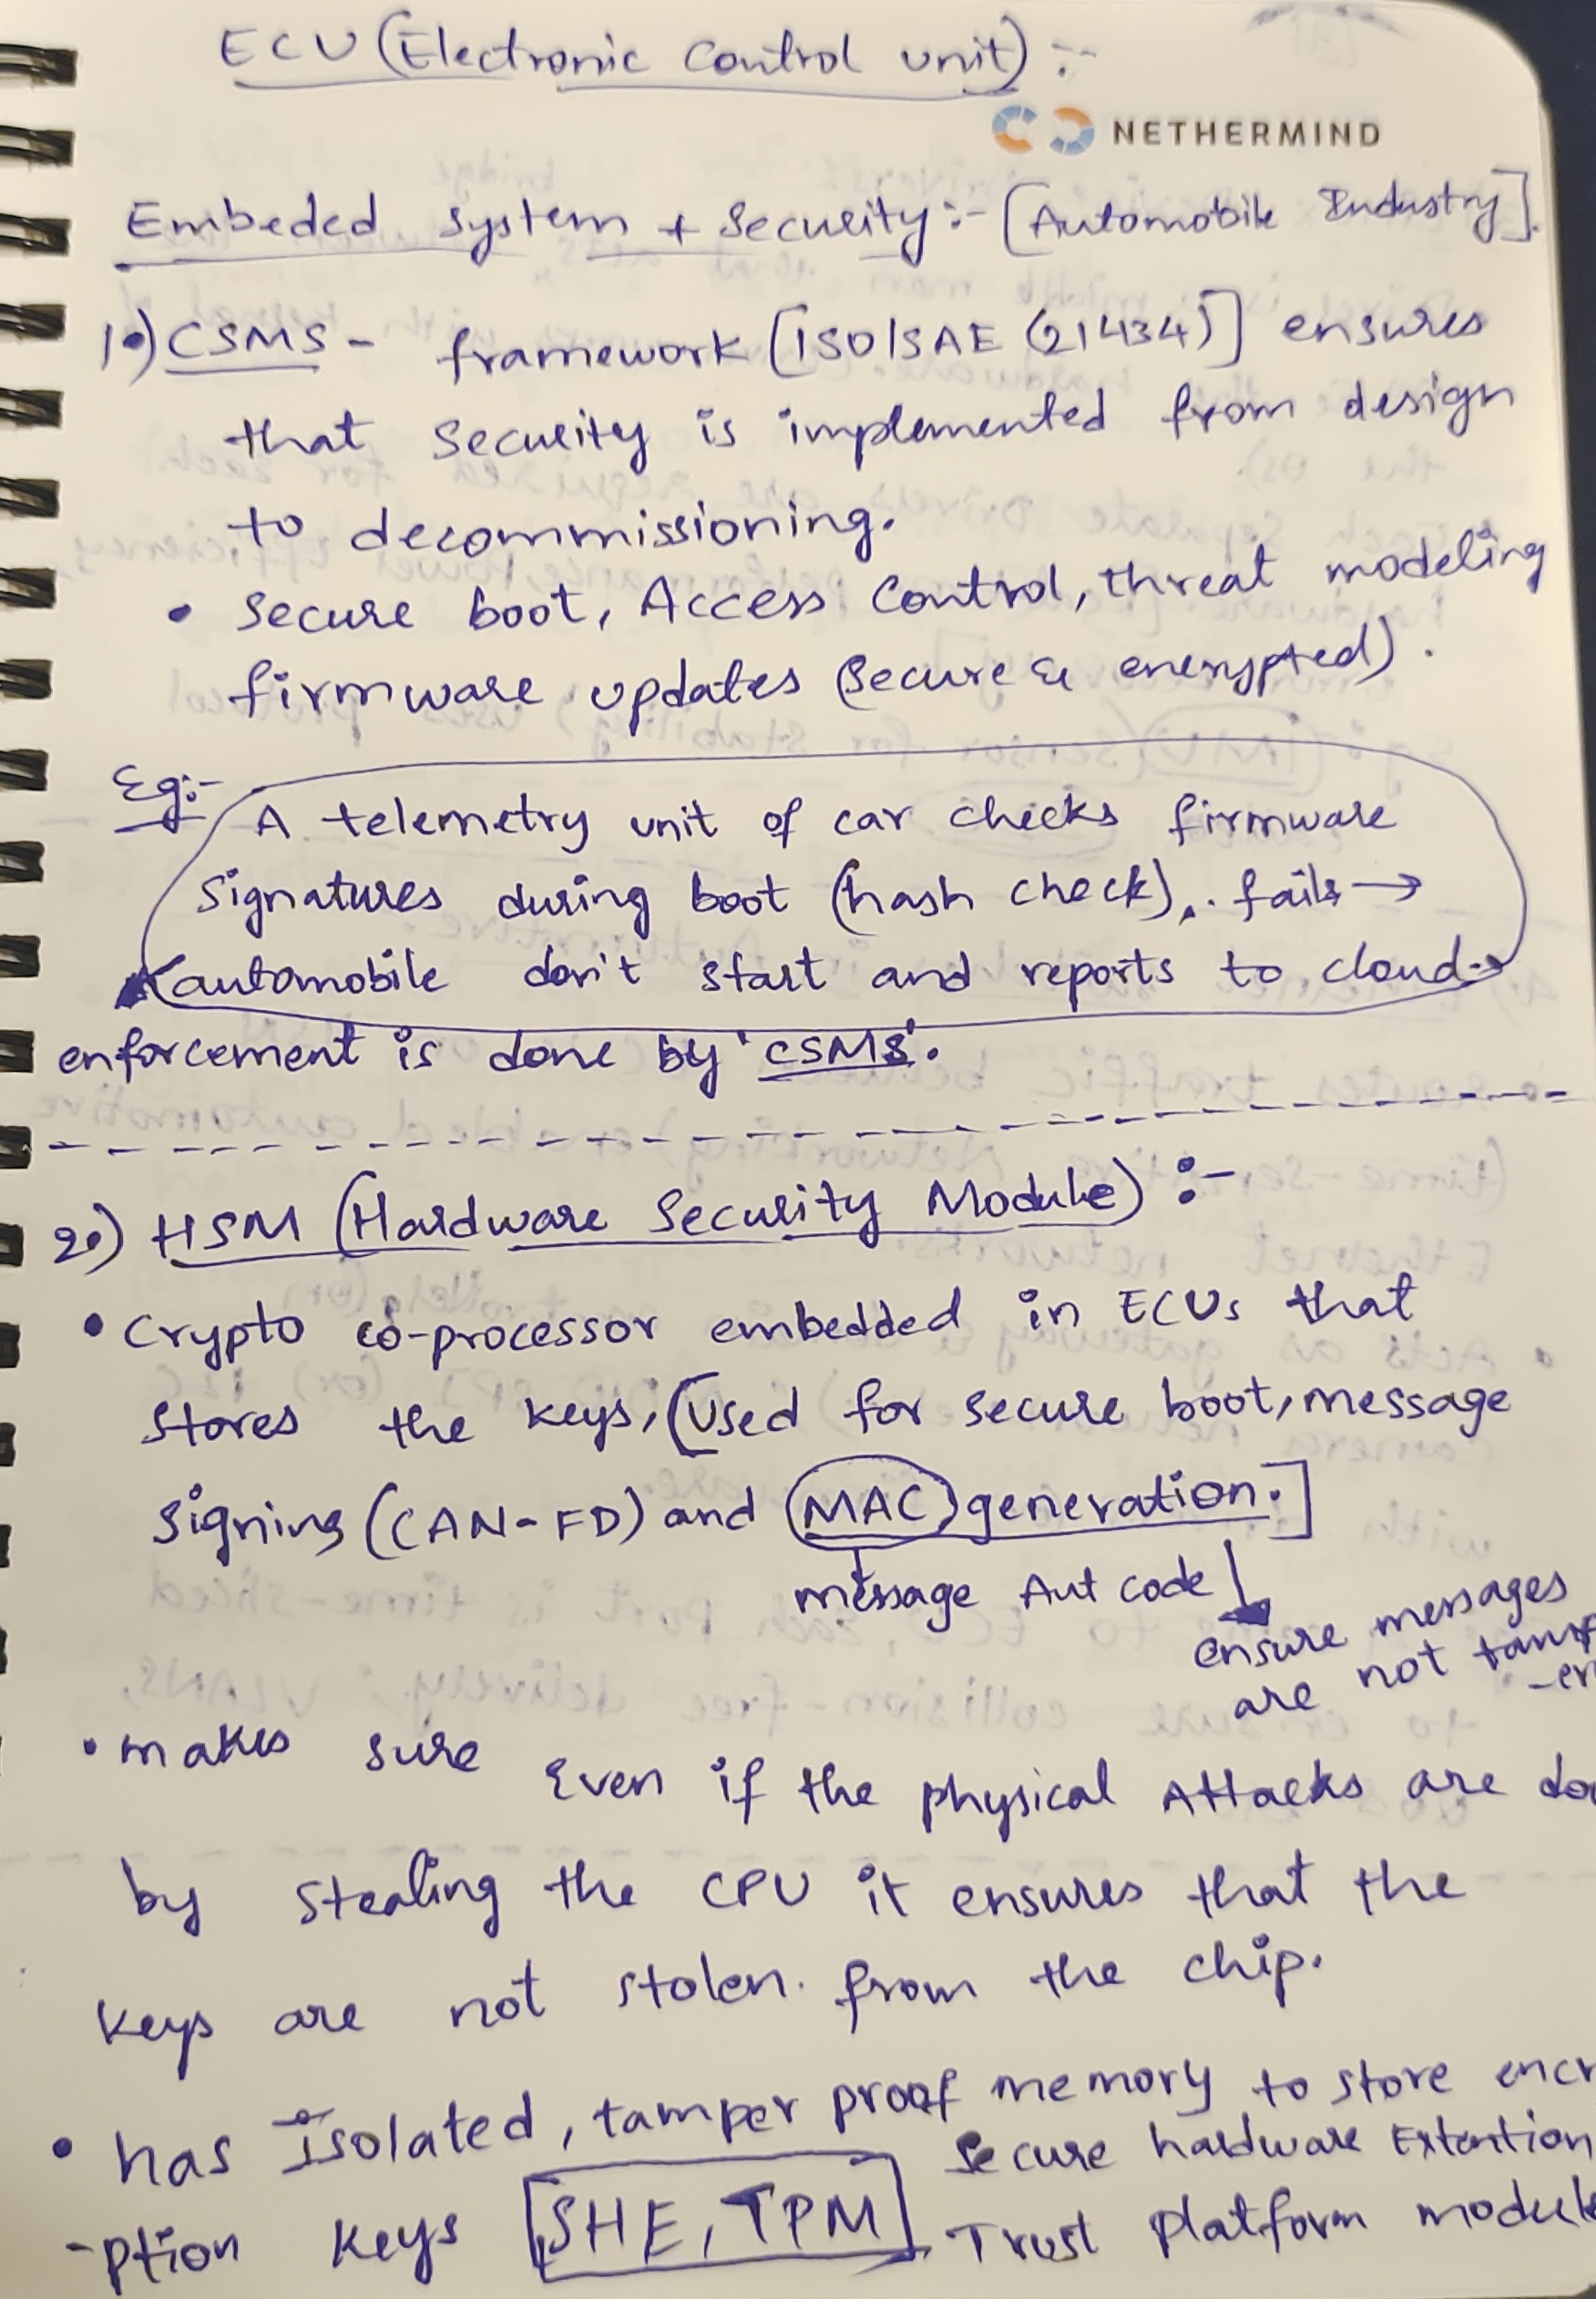 ECU (Electronic Control unit) :-
NETHERMIND
Embeded System + Security :- [Automobile Industry].
1.) CSMS - framework [ISO/SAE (21434)] ensures
that Security is implemented from design
to decommissioning.
• Secure boot, Access Control, threat modeling
firmware updates (Secure & encrypted).
Eg:-
A telemetry unit of car checks firmware
Signatures during boot (hash check), fails →
automobile don't start and reports to cloud →
enforcement is done by 'CSMS'.
2.) HSM (Hardware Security Module) :-
• Crypto co-processor embedded in ECUs that
stores the keys, (Used for secure boot, message
Signing (CAN-FD) and MAC generation.]
message Aut code
ensure messages
are not tamp
-er
• makes sure Even if the physical Attacks are do
by stealing the CPU it ensures that the
keys are not stolen. from the chip.
• has Isolated, tamper proof memory to store encr
-ption keys [SHE, TPM]
Secure hardware Extention
Trust Platform module